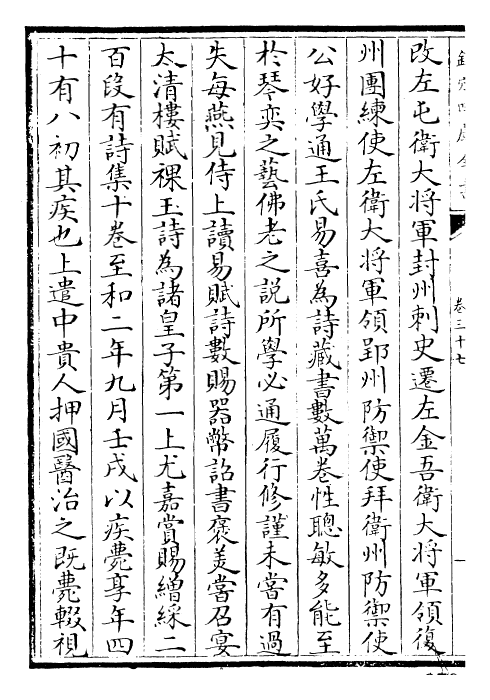 欽定四庫全書
卷三十七
改左屯衛大將軍封州刺史遷左金吾衛大將軍領復
州團練使左衛大將軍領郢州防禦使拜衛州防禦使
公好學通王氏易喜為詩藏書數萬卷性聰敏多能至
於琴奕之藝佛老之説所學必通履行修謹未嘗有過
失每燕見侍上讀易賦詩數賜器幣詔書褒美嘗召宴
太清樓賦祼玉詩為諸皇子第一上尤嘉賞賜繒綵二
百段有詩集十卷至和二年九月壬戌以疾薨享年四
十有八初其疾也上遣中貴人押國醫治之既薨輟視